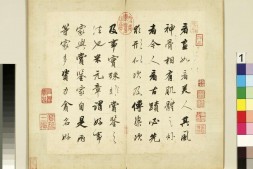 看畫如看美人其風
神骨相有肌體之外
者今人看古蹟必先
求形似次及傅染次
及事實殊非賞鑒之
法也米元章謂好事
家與賞鑒家自是兩
等家多資力貪名好
1